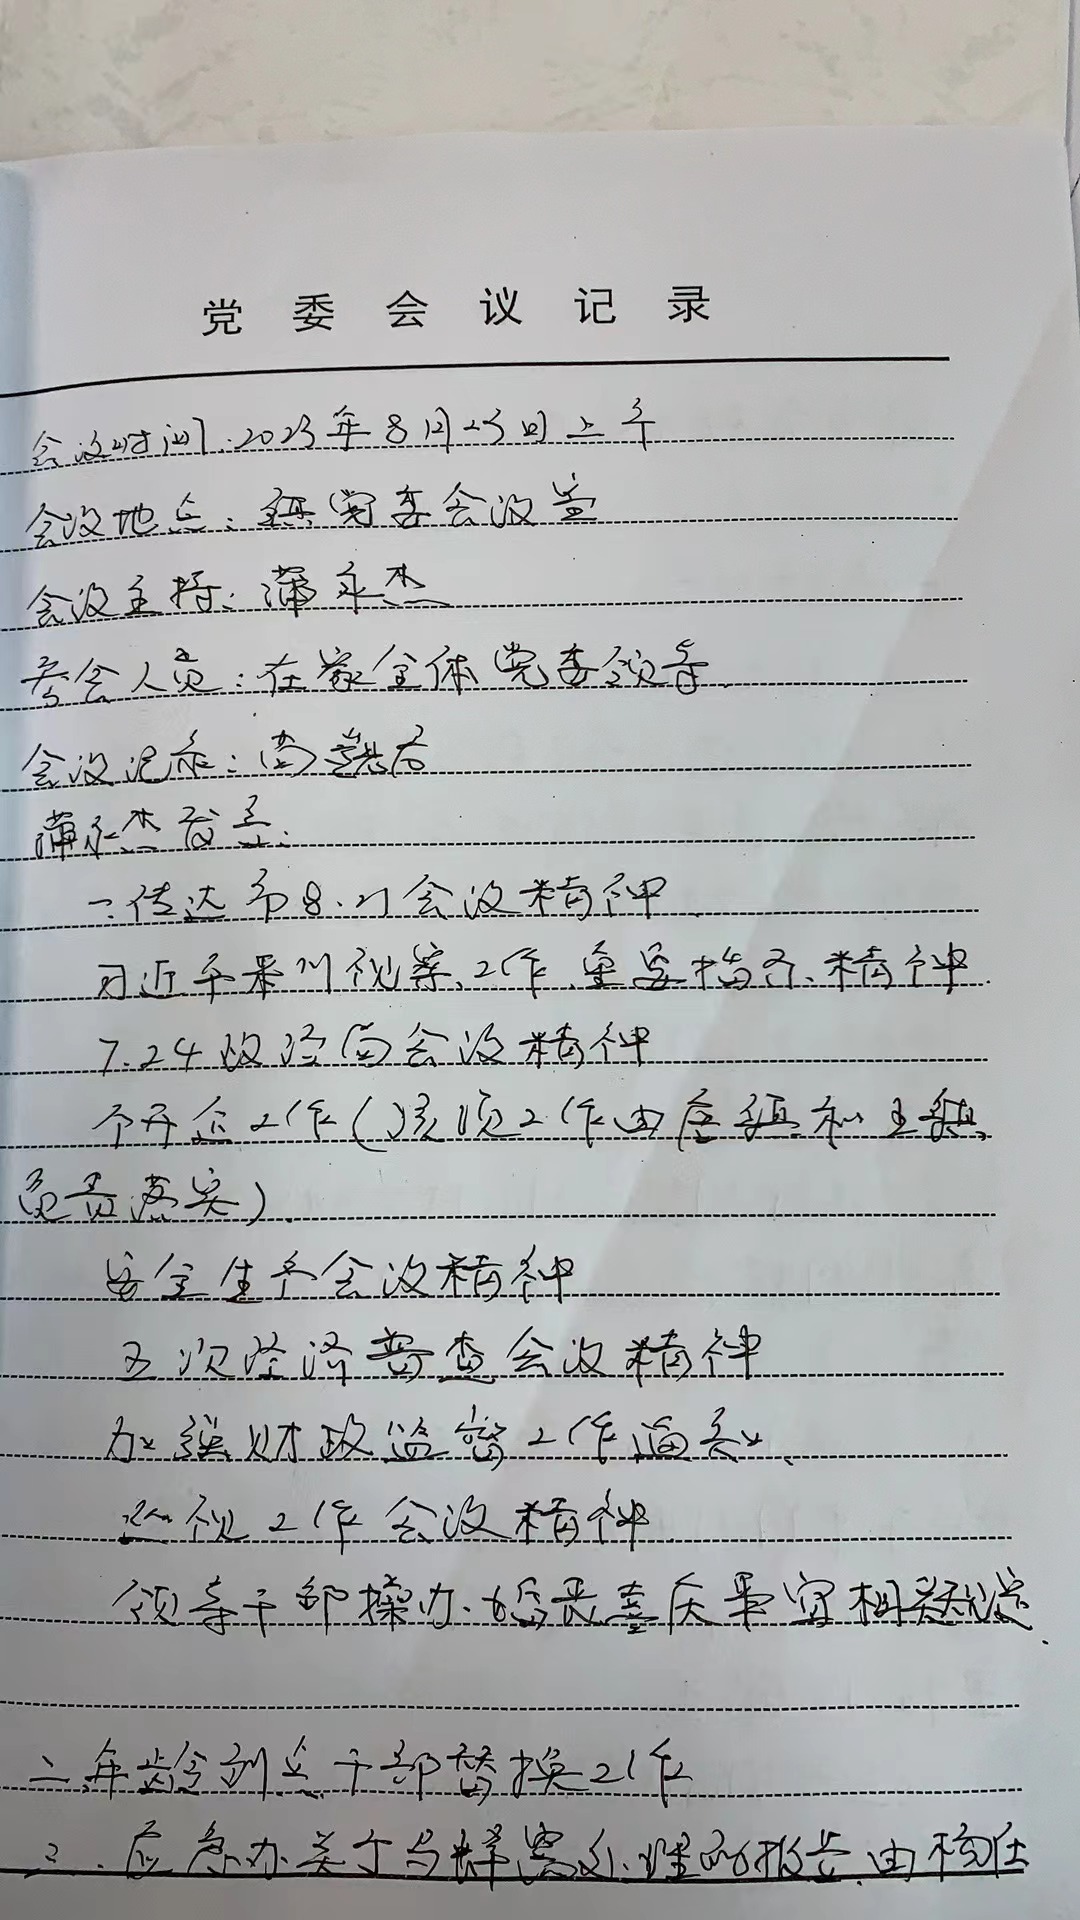 党委会议记录
会议时间:2023年8月25日上午
会议地点:镇党委会议室
会议主持:蒲永杰
参会人员:在家全体党委领导
会议记录:
蒲永杰发言:
一.传达市8.21会议精神
习近平来川视察、工作、重要指示、精神
7.24政治局会议精神
个升企工作(该项工作由 和
负责落实)
安全生产会议精神
五次经济普查会议精神
加强财政监督工作通知
巡视工作会议精神
领导干部操办、婚丧喜庆事宜相关规定
二.年龄到点干部替换工作
2.应急办关于马蜂窝处理的报告.由